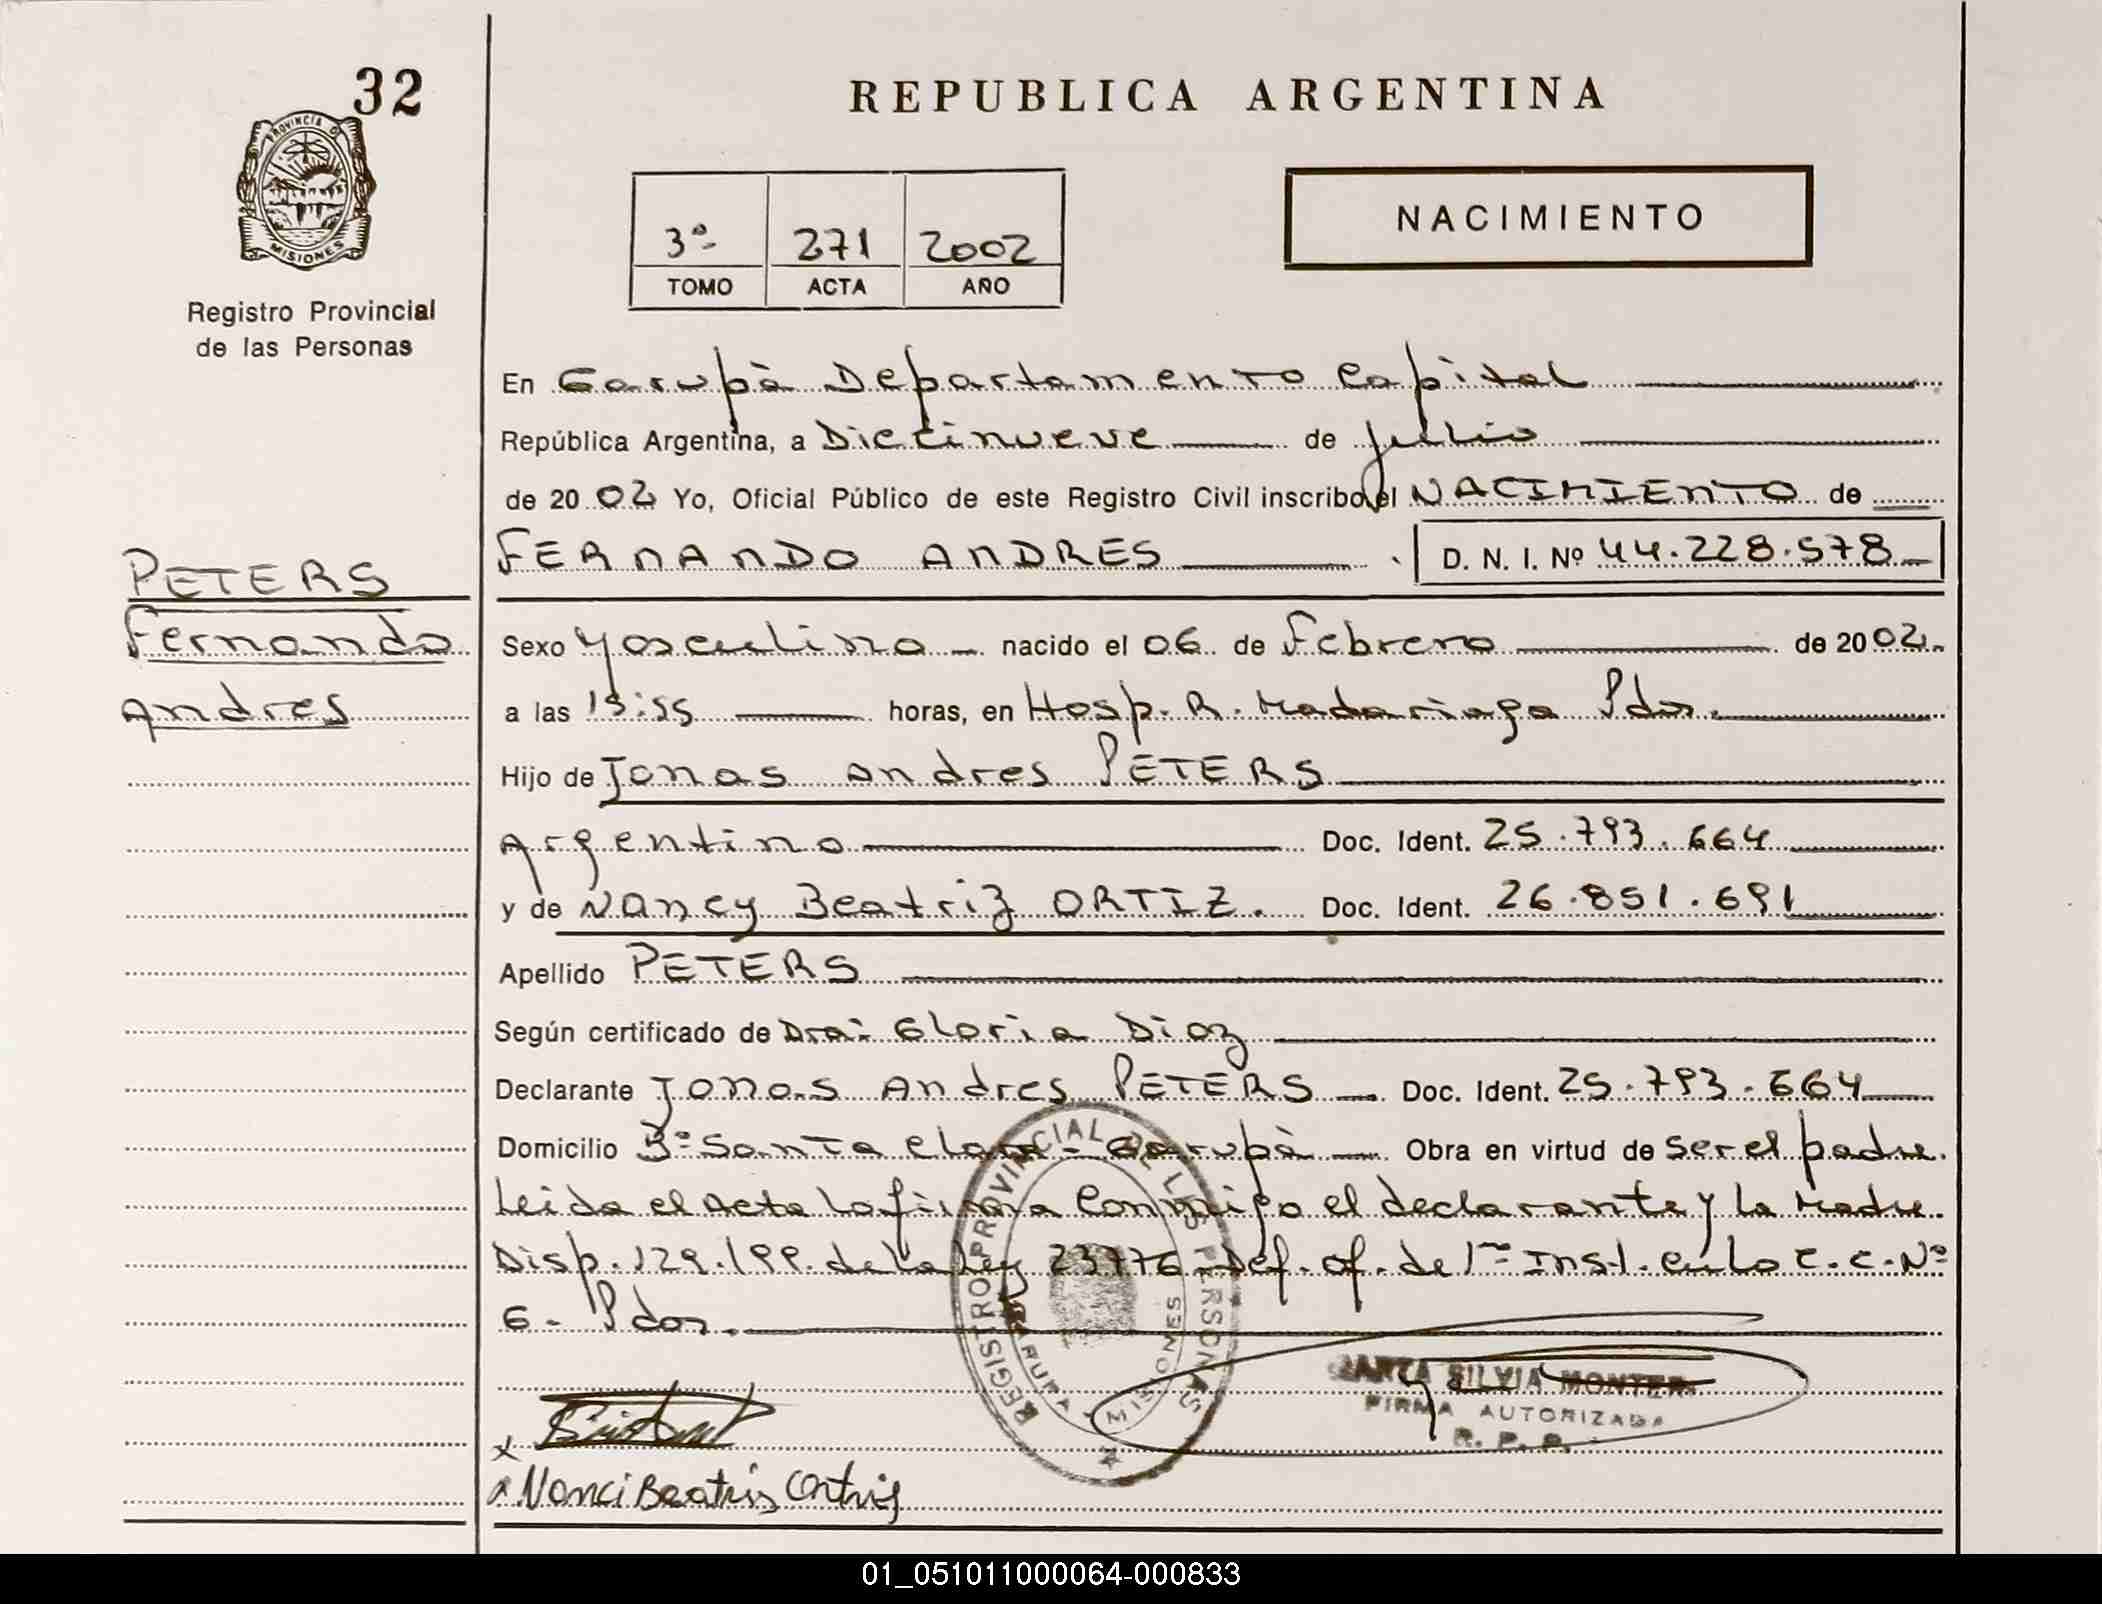 32
PROVINCIA D
MISIONES
Registro Provincial
de las Personas
REPUBLICA ARGENTINA
3º 271 2002
TOMO ACTA AÑO
NACIMIENTO
En Garupà Departamento Capital
República Argentina, a Diecinueve de Julio
de 2002 Yo, Oficial Público de este Registro Civil inscribo el NACIMIENTO de
FERNANDO ANDRES D. N. I. Nº 44.228.578
PETERS
Fernando
Andres
Sexo Masculino nacido el 06 de Febrero de 2002
a las :55 horas, en Hosp. R. Madariaga Pdas.
Hijo de Jonas Andres PETERS
Argentino Doc. Ident. 25.793.664
y de Nancy Beatriz ORTIZ. Doc. Ident. 26.851.691
Apellido PETERS
Según certificado de Dra. Gloria Diaz
Declarante Jonas Andres PETERS Doc. Ident. 25.793.664
Domicilio Bº Santa Clara - Garupà Obra en virtud de ser el padre.
Leida el Acta la firma conmigo el declarante y la Madre.
Disp. 129.199. de la Ley 23776 Def. of. de 1ra Inst. en lo C. C. Nº
6 - Pdas.
REGISTRO PROVINCIAL DE LAS PERSONAS
GARUPA MISIONES
SILVIA MONTER
FIRMA AUTORIZADA
R. P. P.
x
x Nanci Beatris Ortris
01_051011000064-000833